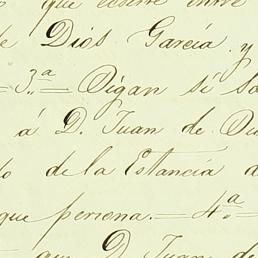 que ocurre entre
de Dios García y
= 3.ª = Digan si
á D. Juan de
de la Estancia
que persona. = 4.ª =
que D. Juan de